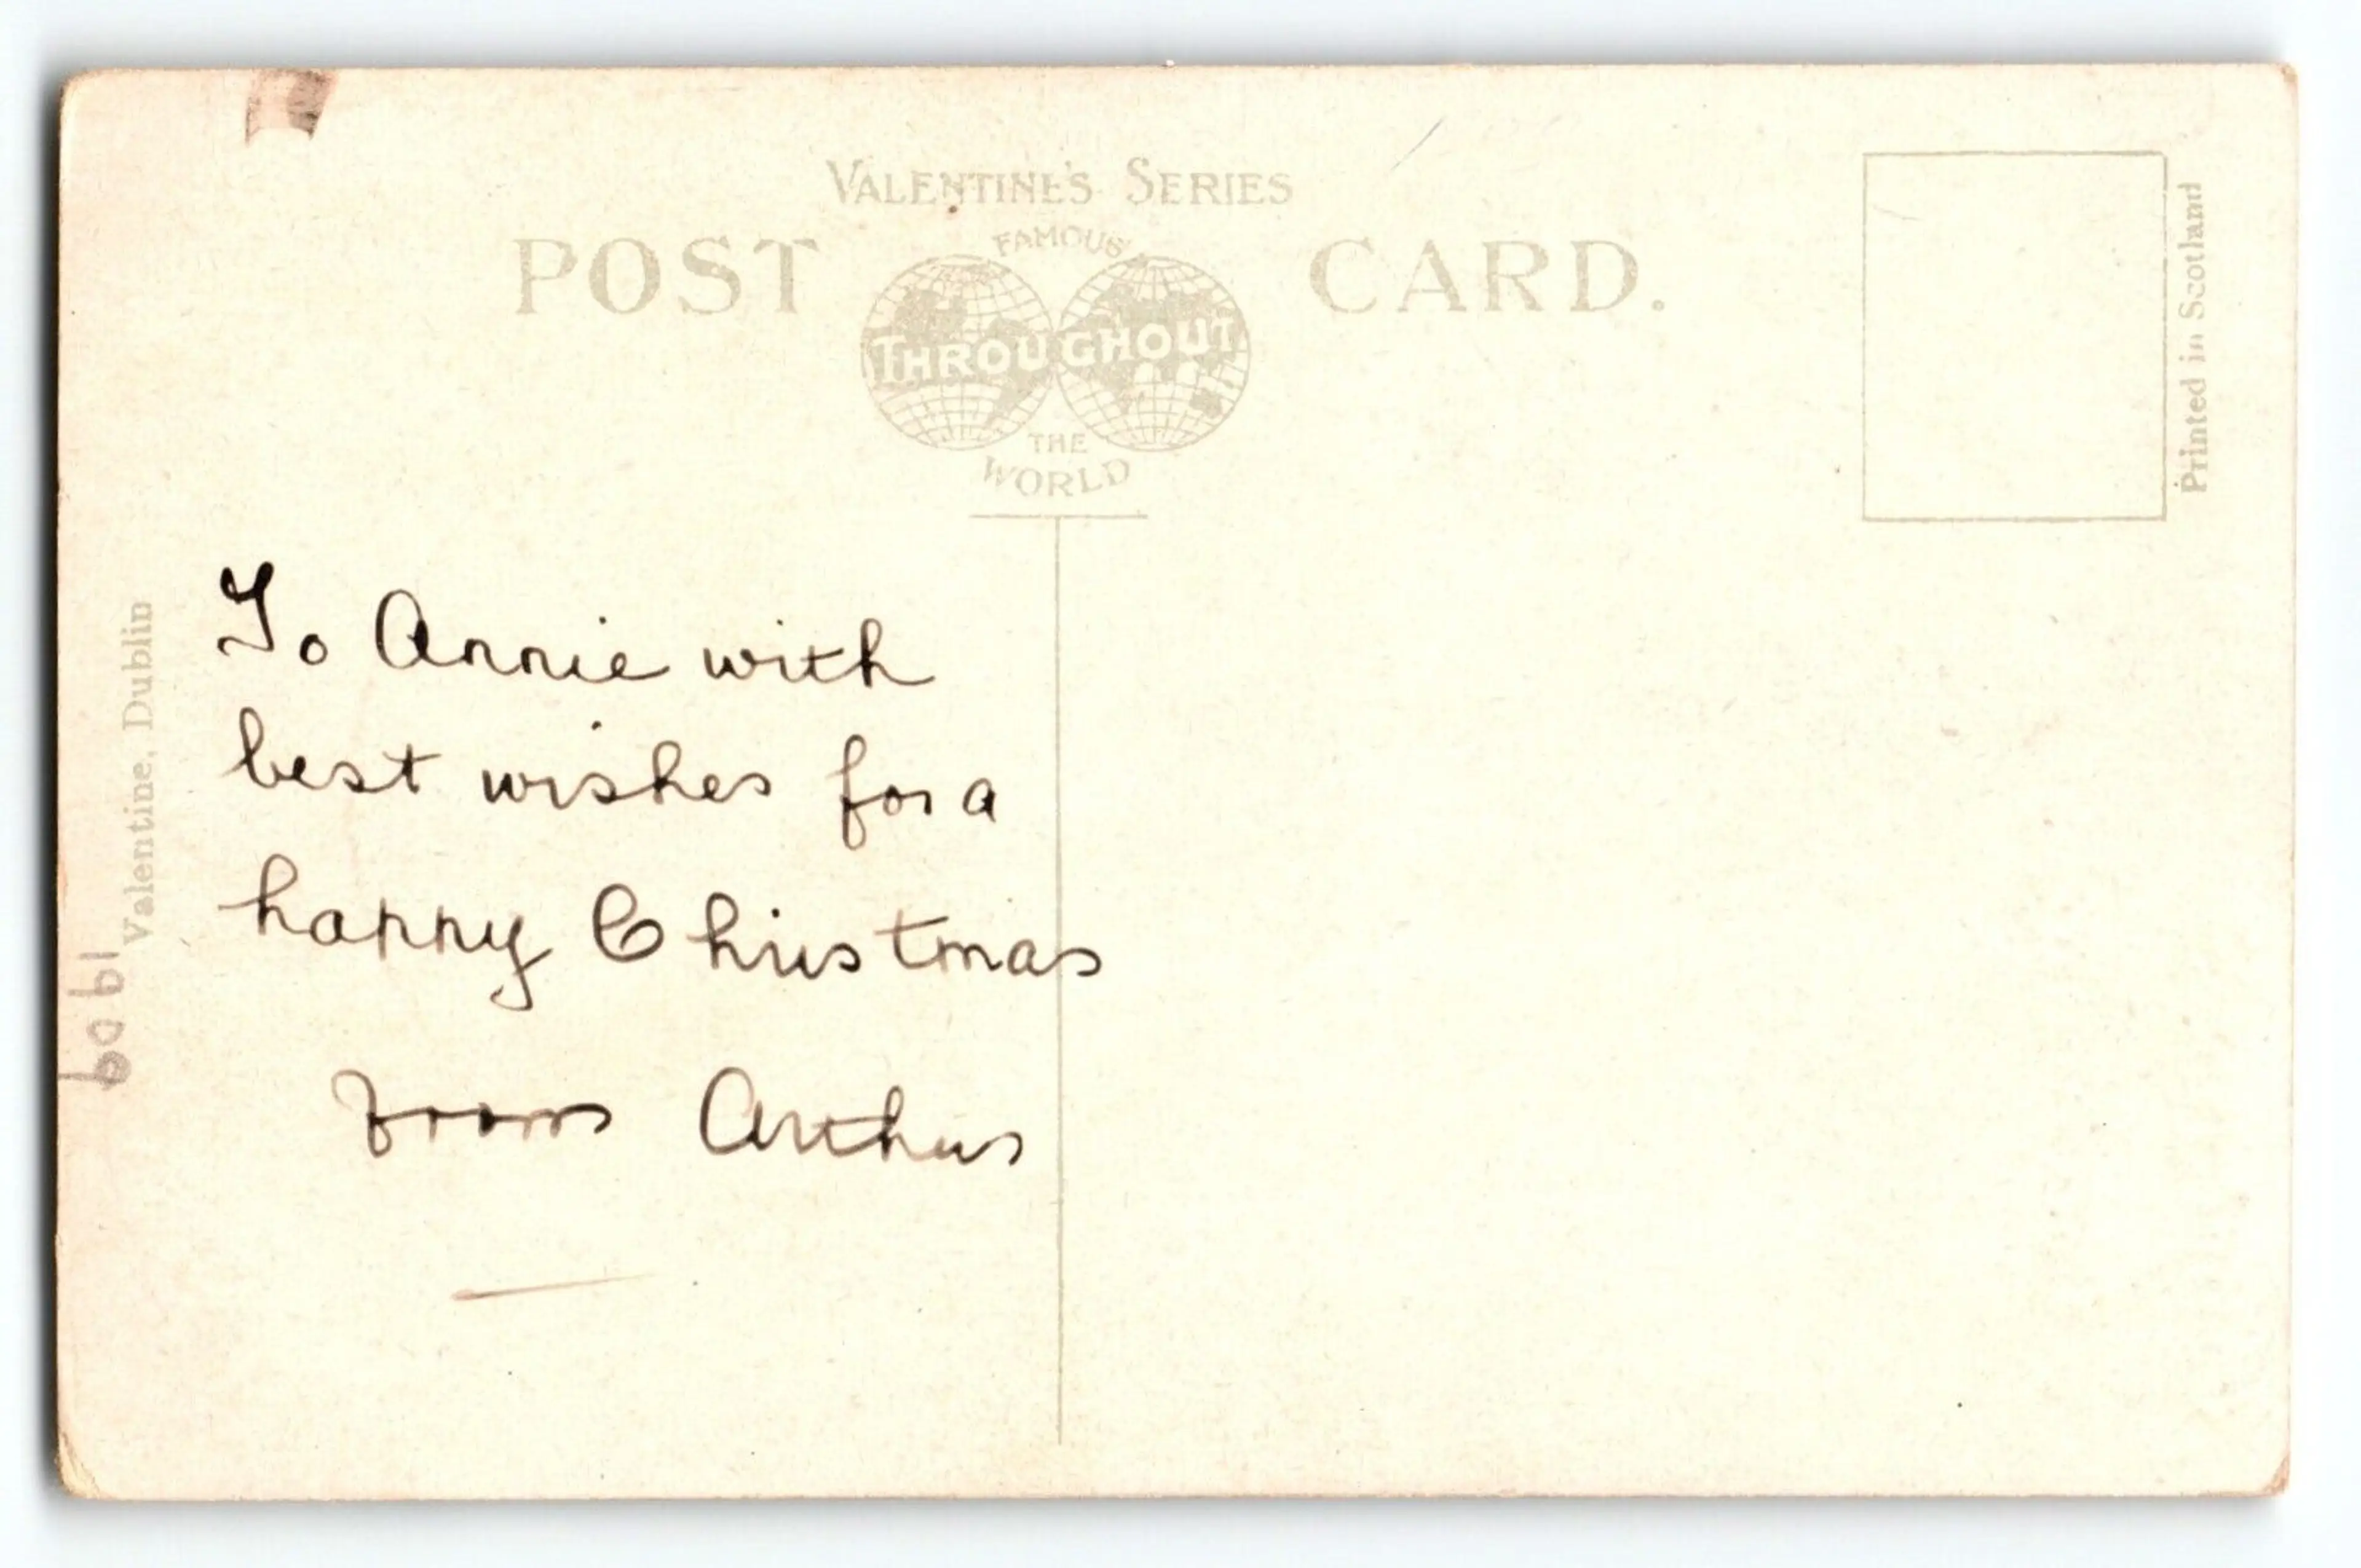 VALENTINE'S SERIES
POST CARD.
FAMOUS
THROUGHOUT
THE
WORLD
Printed in Scotland
Valentine, Dublin
1909
To Annie with
best wishes for a
happy Christmas
from Arthur